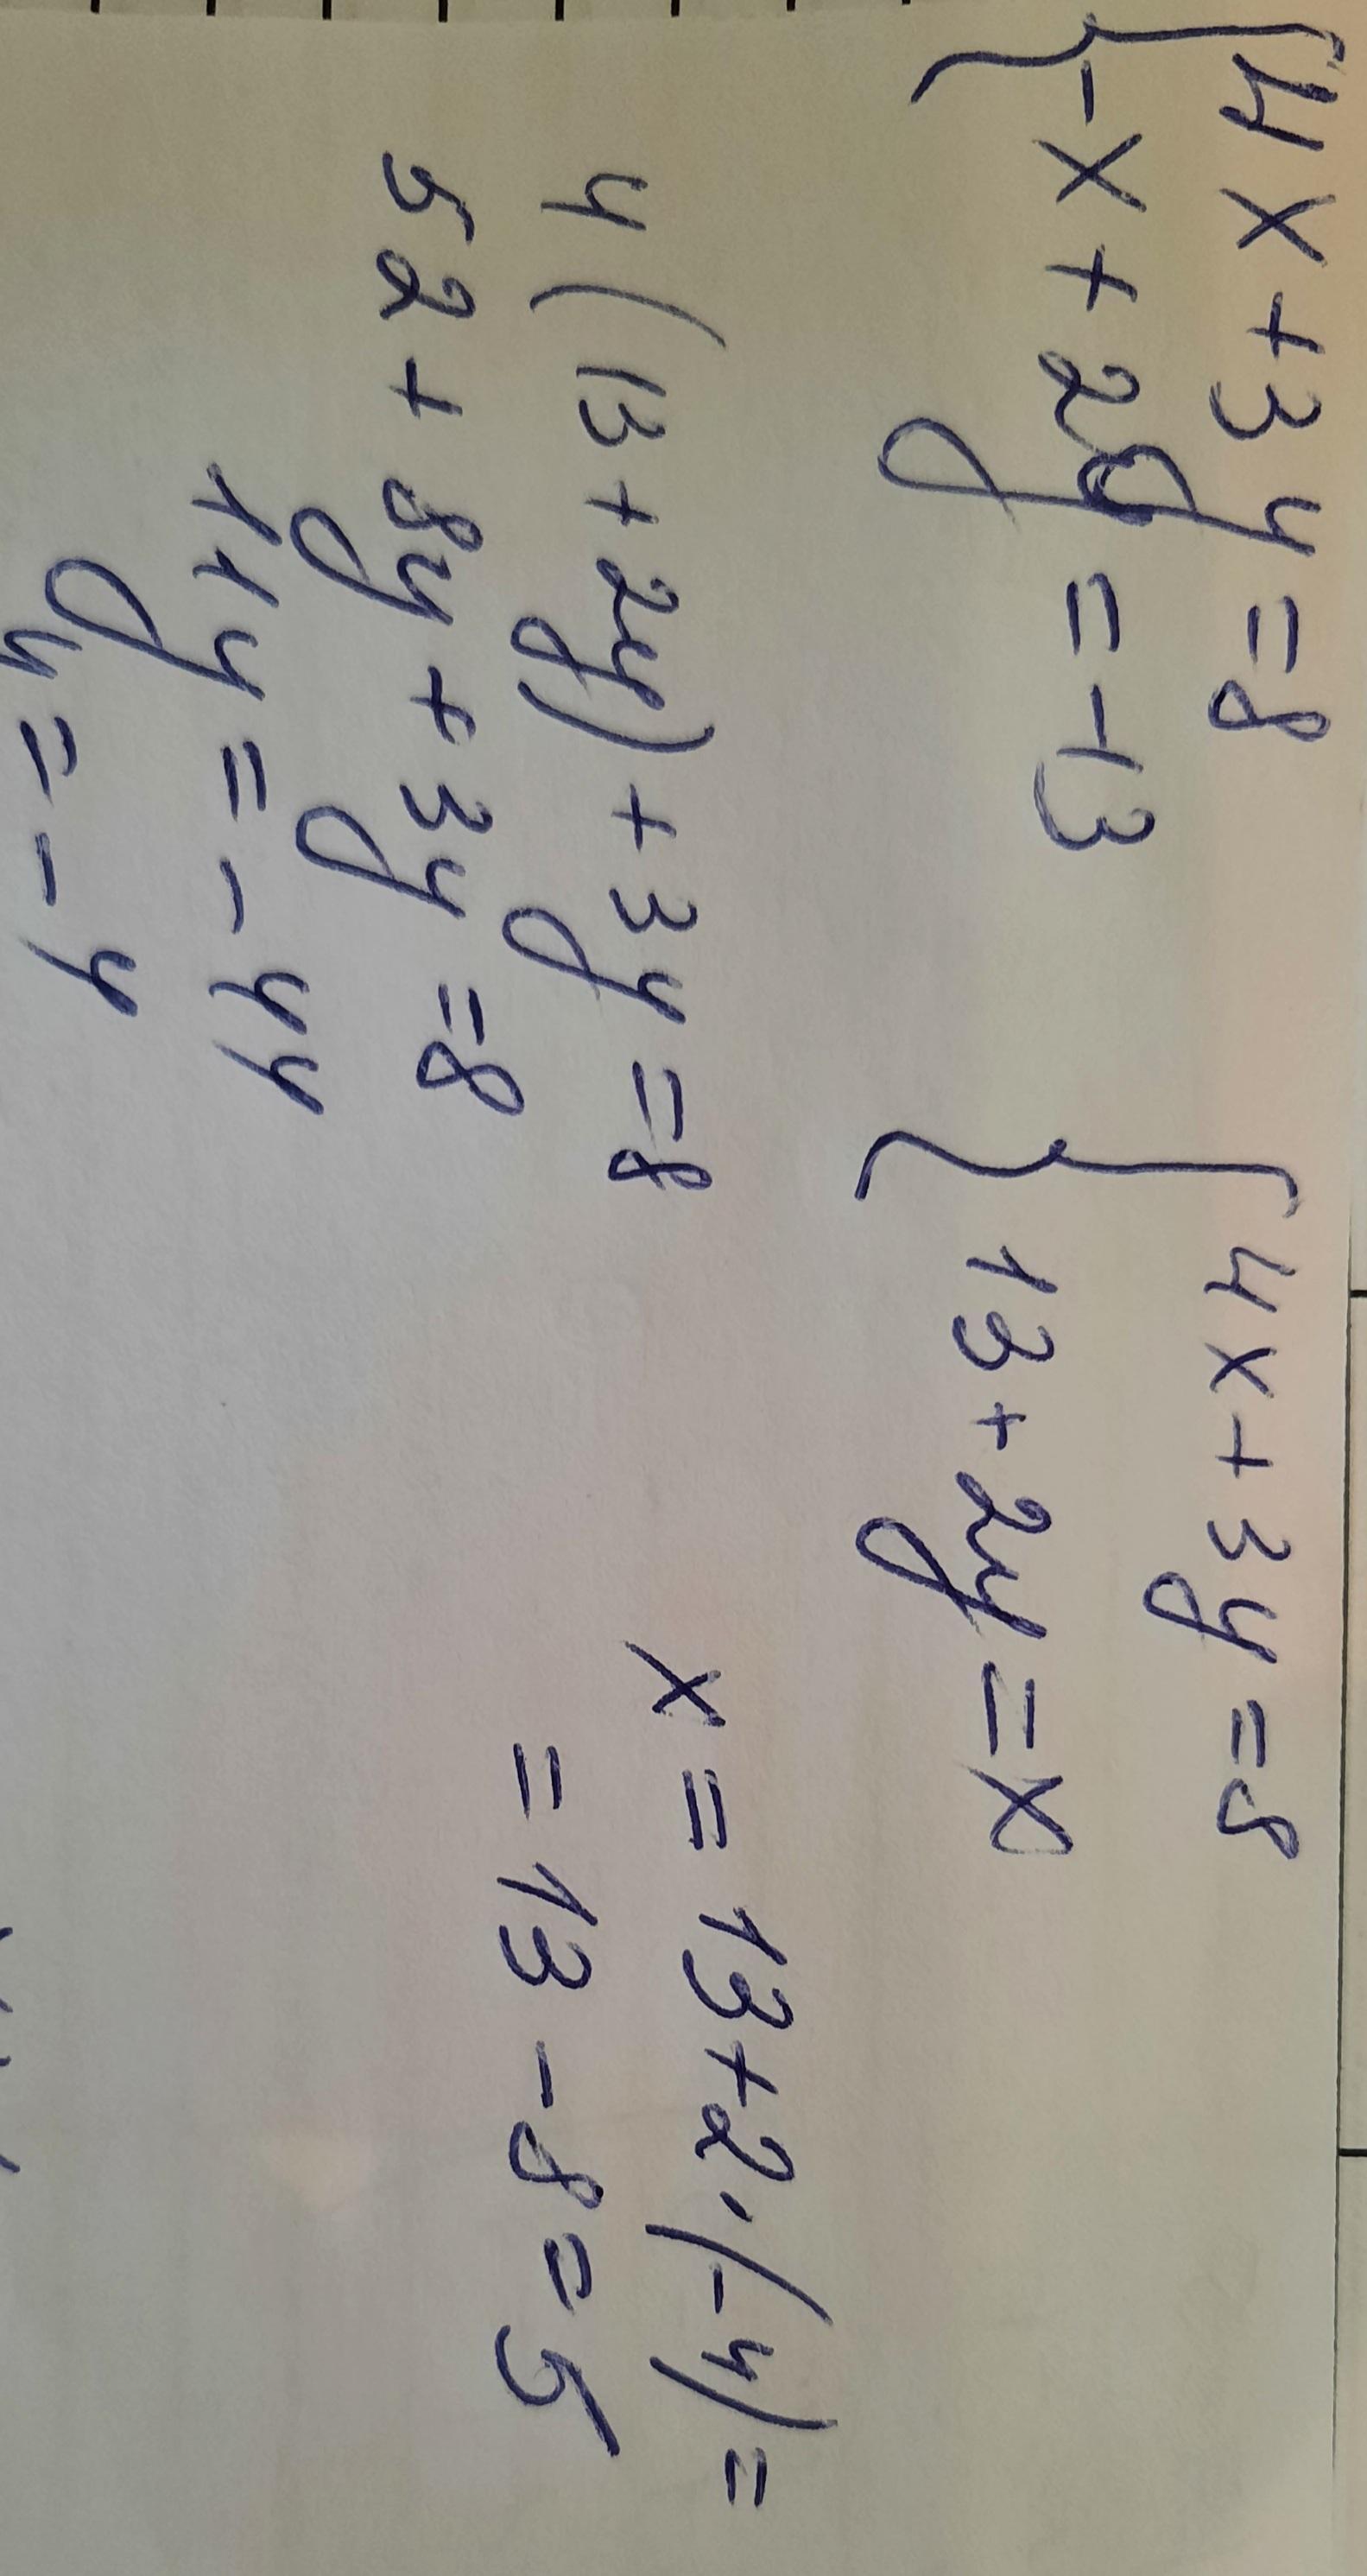 4x+3y=8
-x+2y=-13
4x+3y=8
13+2y=x
4(13+2y)+3y=8
52+8y+3y=8
11y=-44
y=-4
x=13+2·(-4)=
=13-8=5